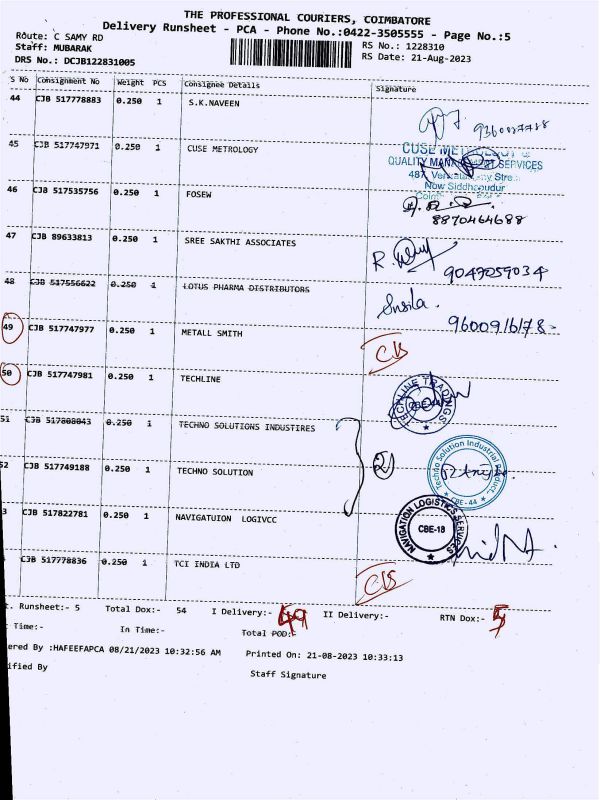 THE PROFESSIONAL COURIERS, COIMBATORE
Delivery Runsheet - PCA - Phone No.:0422-3505555 - Page No.:5
Route: C SAMY RD
RS No.: 1228310
Staff: MUBARAK
RS Date: 21-Aug-2023
DRS No.: DCJB122831005
S No Consignment No Weight PCS Consignee Details Signature
44 CJB 517778883 0.250 1 S.K.NAVEEN
45 CJB 517747971 0.250 1 CUSE METROLOGY
QUALITY MANAGEMENT SERVICES
487,
Now Siddhapudur
46 CJB 517535756 0.250 1 FOSEW
8870464688
47 CJB 89633813 0.250 1 SREE SAKTHI ASSOCIATES
R.
9047059034
48 CJB 517556622 0.250 1 LOTUS PHARMA DISTRIBUTORS
Susila.
9600916178
49 CJB 517747977 0.250 1 METALL SMITH
50 CJB 517747981 0.250 1 TECHLINE
TECHLINE TRADINGS
CBE
51 CJB 517808043 0.250 1 TECHNO SOLUTIONS INDUSTIRES
2
52 CJB 517749188 0.250 1 TECHNO SOLUTION
Techno Solution Industrial Product
CBE-44
3 CJB 517822781 0.250 1 NAVIGATUION LOGIVCC
NAVIGATION LOGISTICS SERVICES
CBE-18
CJB 517778836 0.250 1 TCI INDIA LTD
t. Runsheet:- 5 Total Dox:- 54 I Delivery:- 49 II Delivery:- RTN Dox:- 5
Time:- In Time:- Total POD:-
ered By :HAFEEFAPCA 08/21/2023 10:32:56 AM Printed On: 21-08-2023 10:33:13
ified By
Staff Signature